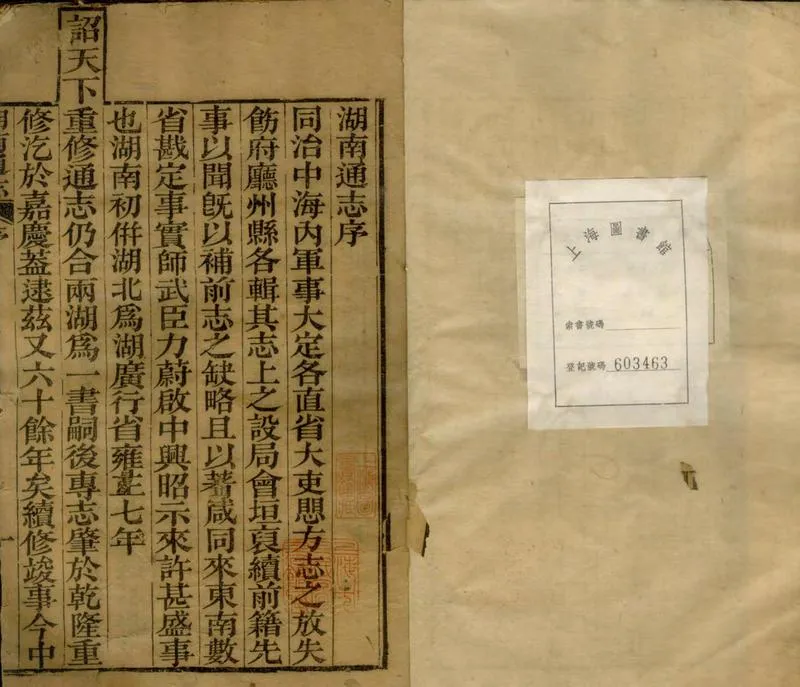 湖南通志序
同治中海內軍事大定各直省大吏思方志之放失
飭府廳州縣各輯其志上之設局會垣裒續前籍先
事以聞旣以補前志之缺略且以著咸同來東南數
省戡定事實師武臣力蔚啟中興昭示來許甚盛事
也湖南初併湖北爲湖廣行省雍正七年
詔天下重修通志仍合兩湖爲一書嗣後專志肇於乾隆重
修汔於嘉慶葢逮茲又六十餘年矣續修竣事今中
上海圖書館
索書號碼
登記號碼 603463